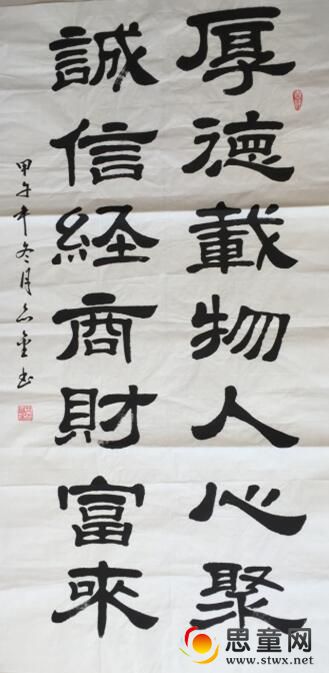 厚德載物人心聚
誠信経商財富來
甲午年冬月
思童网
www.stwx.net